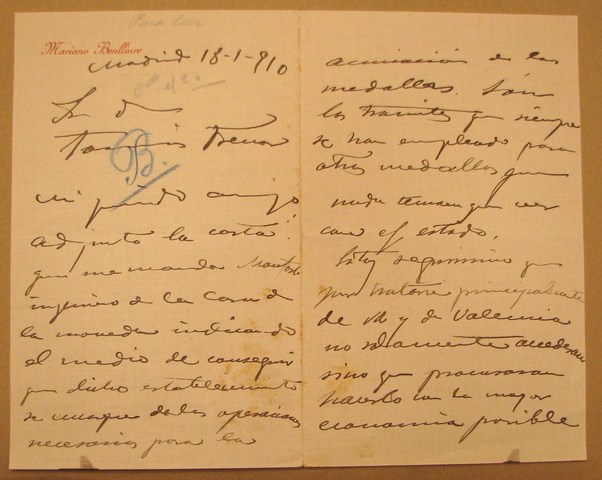 Para leer
Mariano Benlliure
Madrid 18-1-910
Sr Dn
Tomás Trenor
B.
Mi querido amigo
adjunto la carta
que me manda
ingeniero de la Casa de
la moneda indicando
el medio de conseguir
que dicho establecimiento
se encargue de las operaciones
necesarias para la
acuñación de las
medallas. Son
los tramites que siempre
se han empleado para
otras medallas que
nada tenian que ver
con el estado.
Estoy segurisimo que
por tratarse principalmente
de V. y de Valencia
no solamente accederan
sino que procuraran
hacerlo con la mayor
economia posible